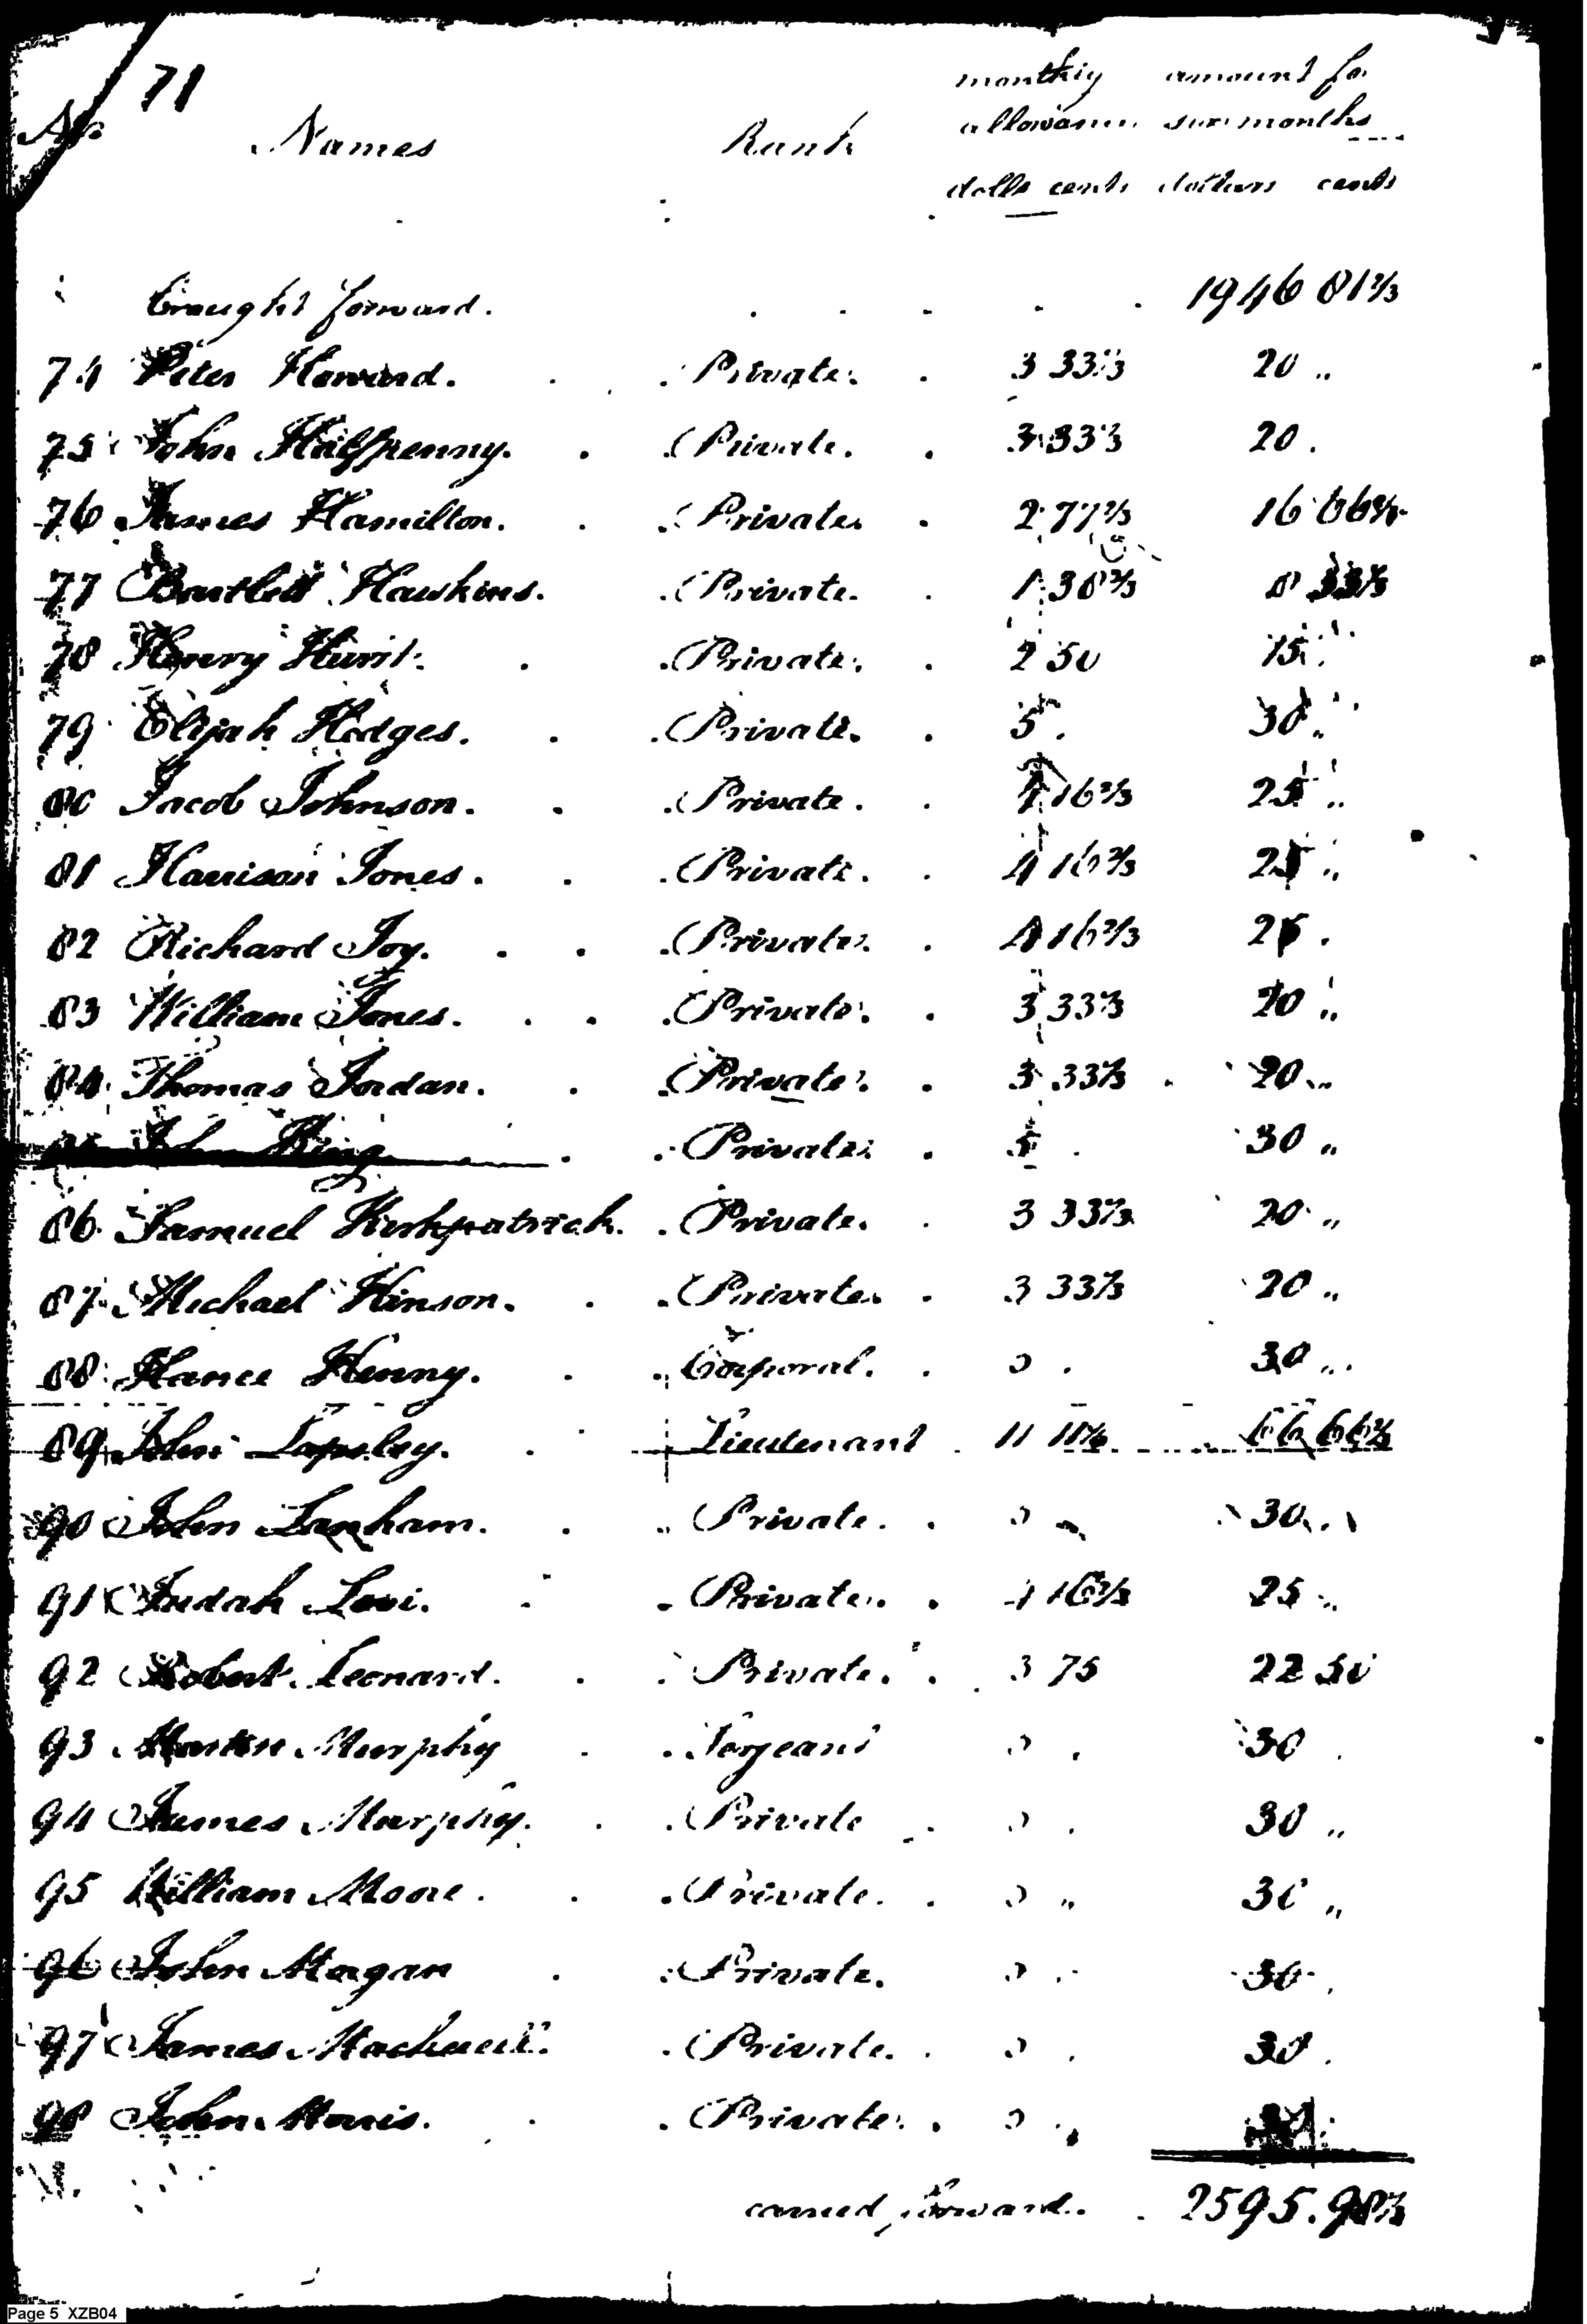 71
No Names Rank monthly allowance amount for six months
dolls cents dollars cents
Brought forward. 1946 81 2/3
74 Peter Howard. Private. 3 33 1/3 20 "
75 John Halfpenny. Private. 3 33 1/3 20.
76 James Hamilton. Private. 2 77 2/3 16 66 2/3
77 Bartlett Hawkins. Private. 1 38 2/3 8 33 1/3
78 Henry Private. 2 50 15 "
79 Elijah Hedges. Private. 5. 30 "
80 Jacob Johnson. Private. 4 16 2/3 25 "
81 Harrison Jones. Private. 4 16 2/3 25 "
82 Richard Joy. Private. 4 16 2/3 25.
83 William Jones. Private. 3 33 1/3 20 "
84 Thomas Jordan. Private. 3 33 1/3 20 "
John King Private. 5. 30 "
86 Samuel Kirkpatrick. Private. 3 33 1/3 20 "
87 Michael Kinson. Private. 3 33 1/3 20 "
88 Hance Kenny. Corporal. 5. 30 "
89 John Lapsley. Lieutenant 11 66 2/3
90 John Lanham. Private. 5 30 "
91 Judah Levi. Private. 4 16 2/3 25 "
92 Robert Leonard. Private. 3 75 22 50
93 Murphy Serjeant 5. 30.
94 James Murphy. Private 5. 30 "
95 William Moore. Private. 5 " 30 "
96 John Magan Private. 5. 30.
97 James Private. 5. 30.
98 John Private. 5.
carried forward. 2595.98 1/3
Page 5 XZB04